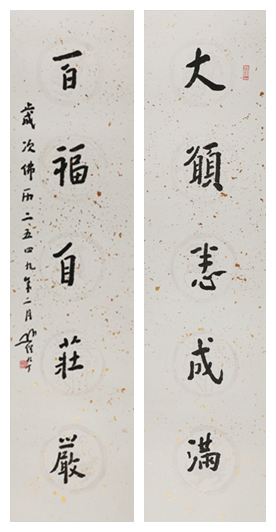 大願悉成滿
百福自莊嚴
歲次佛曆二五四九年二月